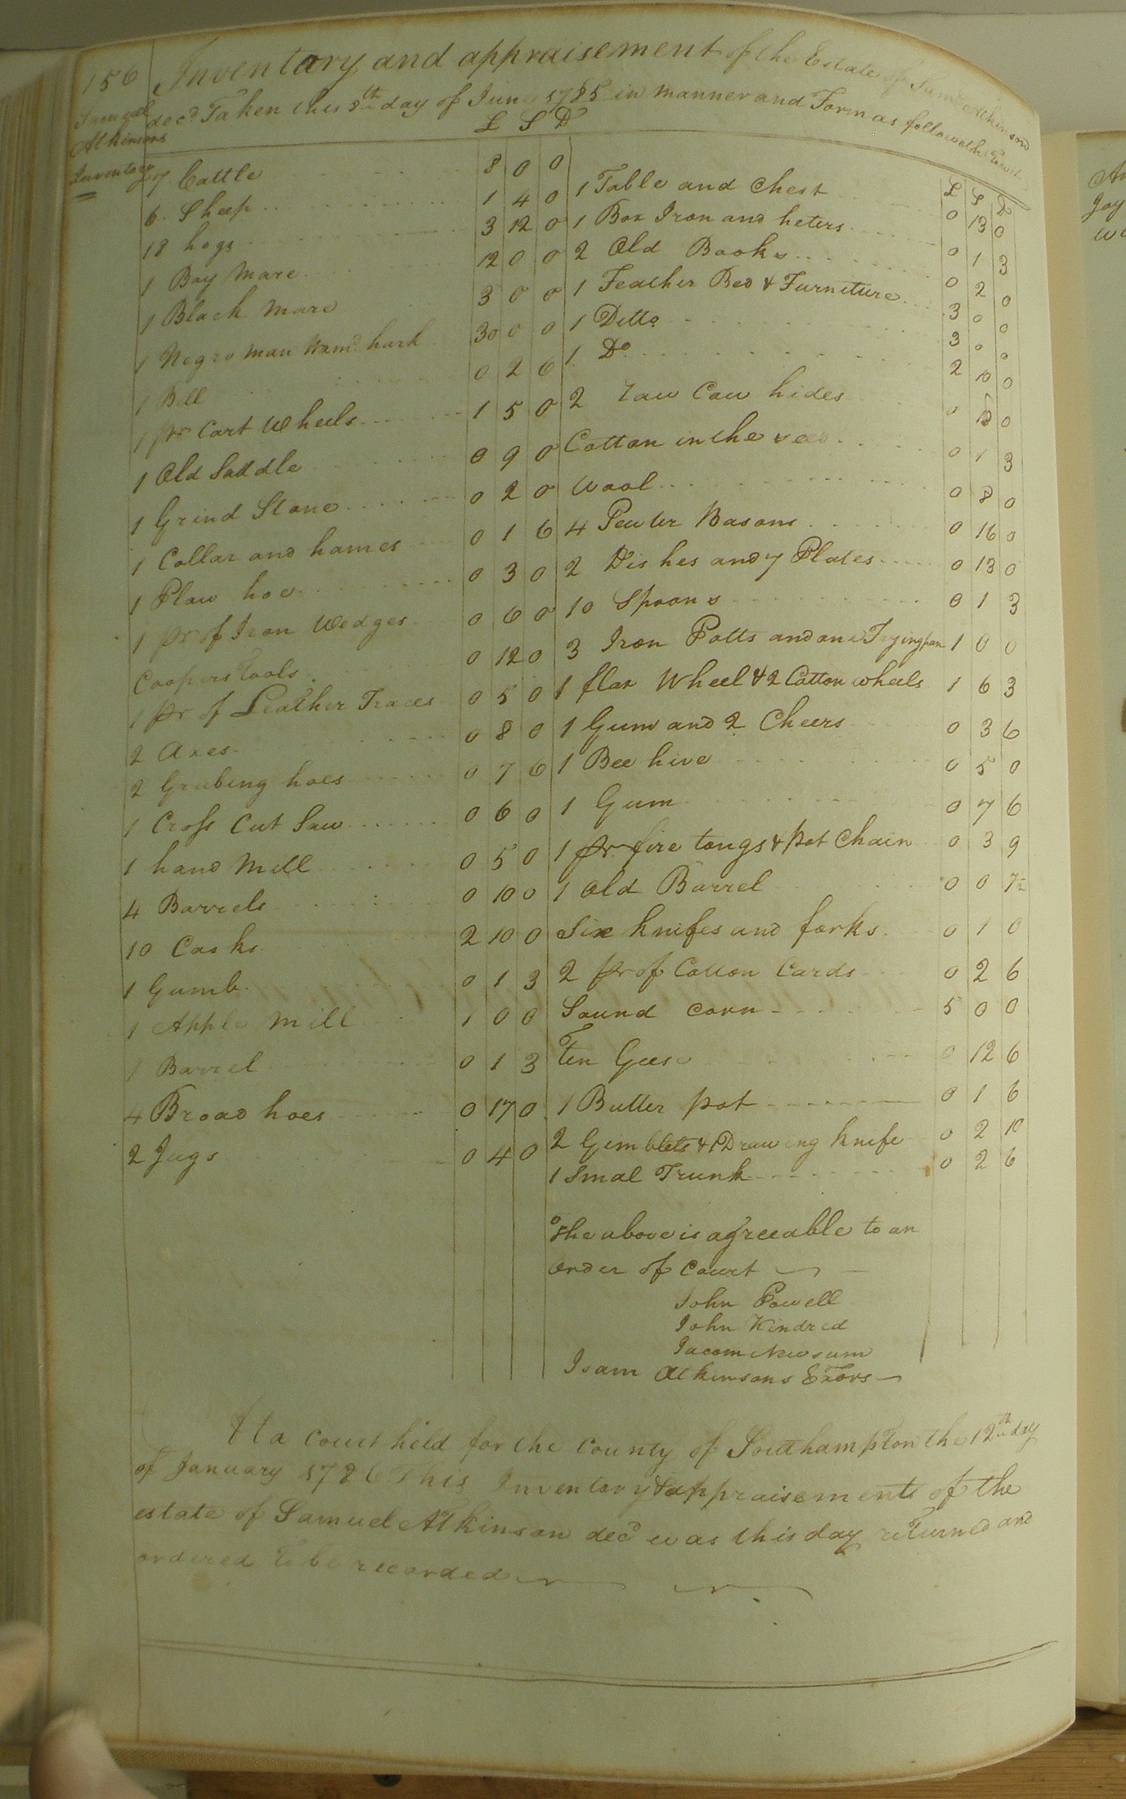 156 Inventory and appraisement of the Estate of Saml Atkinson
decd Taken this 5th day of June 1785 in manner and Form as followeth
Samuel
Atkinsons
Inventory
£ S D
7 Cattle 8 0 0
6 Sheep 1 4 0
18 hogs 3 12 0
1 Bay Mare 12 0 0
1 Black Mare 3 0 0
1 Negro man Namd 30 0 0
1 Bill 0 2 6
1 pr Cart Wheels 1 5 0
1 Old Saddle 0 9 0
1 Grind Stone 0 2 0
1 Collar and hames 0 1 6
1 Plow hoe 0 3 0
1 pr of Iron Wedges 0 6 0
Coopers Tools 0 12 0
1 pr of Leather Traces 0 5 0
2 Axes 0 8 0
2 Grubing hoes 0 7 6
1 Cross Cut Saw 0 6 0
1 hand Mill 0 5 0
4 Barrels 0 10 0
10 Casks 2 10 0
1 Gumb 0 1 3
1 Apple Mill 1 0 0
1 Barrel 0 1 3
4 Broad hoes 0 17 0
2 Jugs 0 4 0
£ S D
1 Table and Chest 0 13 0
1 Box Iron and heters 0 1 3
2 Old Books 0 2 0
1 Feather Bed & Furneture 3 0 0
1 Ditto 3 0 0
1 Do 2 10 0
2 raw Cow hides 0 0
Cotton in the 0 1 3
Wool 0 8 0
4 Pewter Basons 0 16 0
2 Dishes and 7 Plates 0 13 0
10 Spoons 0 1 3
3 Iron Potts and one Fryingpan 1 0 0
1 flax Wheel & 2 Cotton wheels 1 6 3
1 Gum and 2 Cheers 0 3 6
1 Bee hive 0 5 0
1 Gum 0 7 6
1 pr fire tongs & Pot Chain 0 3 9
1 Old Barrel 0 0 7½
Six knifes and forks 0 1 0
2 pr of Cotton Cards 0 2 6
Sound corn 5 0 0
Ten Geese 0 12 6
1 Butter pot 0 1 6
2 Gemblets & 1 Drawing knife 0 2 10
1 Smal Trunk 0 2 6
The above is agreeable to an
order of Court
John Powell
John Kindred
Jacom Newsum
Isam Atkinsons Exors
At a Court held for the County of Southampton the 12th day
of January 1786 This Inventory & appraisements of the
estate of Samuel Atkinson decd was this day returned and
ordered to be recorded